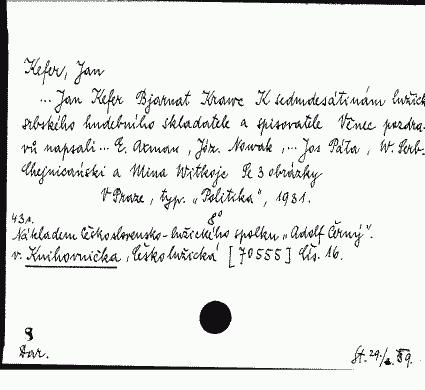 Kefer, Jan
... Jan Kefer Bjarnat Krawc K sedmdesátinám lužick
srbského hudebního skladatele a spisovatele Věnec pozdra-
vů napsali ... E. Axman, Józ. Nowak, ... Jos Páta, W. Serb.-
Chejnicański a Mina Witkojc Se 3 obrázky
V Praze, typ. „Politika", 1931.
43 s. 8°
Nákladem Československo-lužického spolku „Adolf Černý".
v. Knihovnička, Českolužická [70555] čís. 16.
8
Dar.
St. 29./